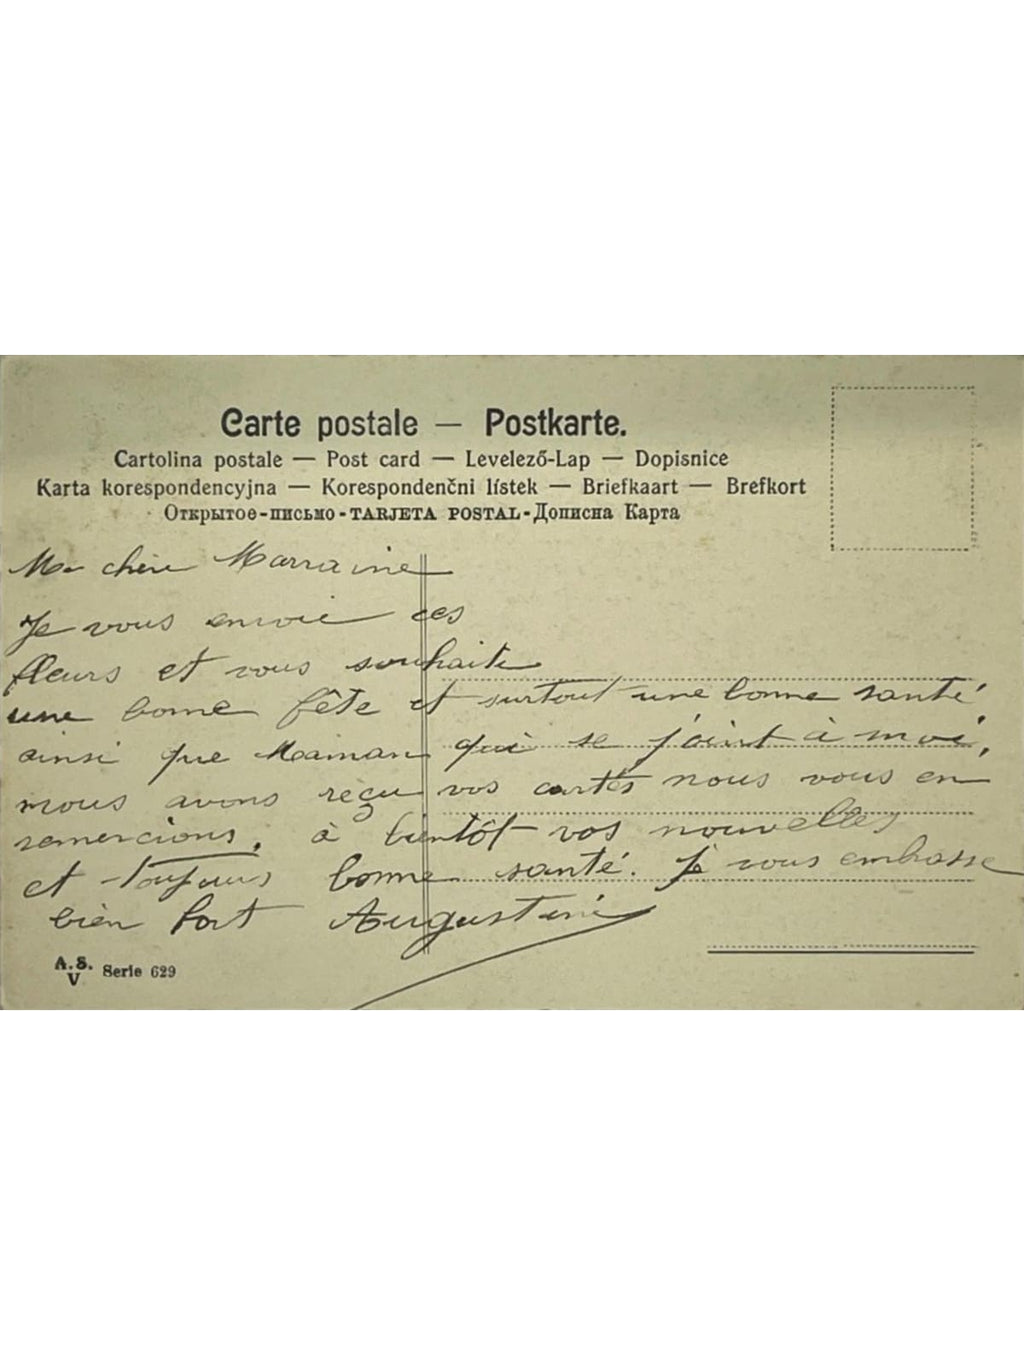 Carte postale — Postkarte.
Cartolina postale — Post card — Levelező-Lap — Dopisnice
Karta korespondencyjna — Korespondenčni lístek — Briefkaart — Brefkort
Открытое-письмо - TARJETA POSTAL - Дописна Карта
Ma chère Marraine
Je vous envoie ces
fleurs et vous souhaite
une bonne fête et surtout une bonne santé
ainsi que Maman qui se joint à moi,
nous avons reçu vos cartes nous vous en
remercions, à bientôt vos nouvelles
et toujours bonne santé. Je vous embrasse
bien fort Augustine
A.S.
V Serie 629